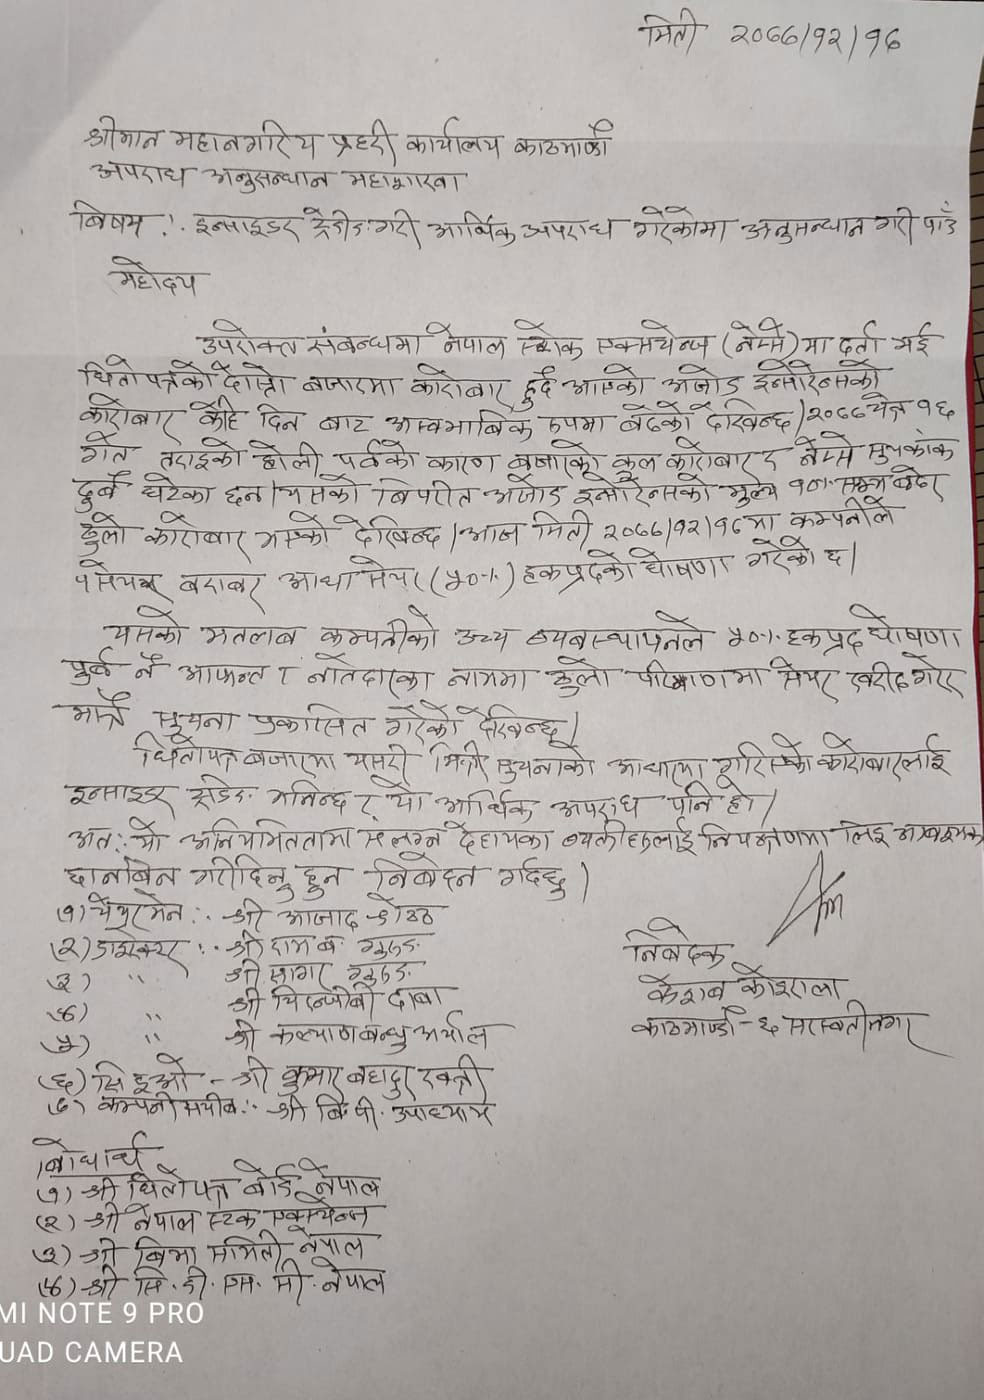 मिती २०७७/१२/१८
श्रीमान महानगरिय प्रहरी कार्यालय काठमाण्डौ
अपराध अनुसन्धान महाशाखा
बिषय : इन्साइडर ट्रेडीङ गरी आर्थिक अपराध गरेकोमा अनुसन्धान गरी पाउँ
महोदय
उपरोक्त संबन्धमा नेपाल स्टोक एक्सचेन्ज (नेप्से) मा दर्ता भई
धितोपत्रको दोस्रो बजारमा कारोबार हुदै आएको अजोड इन्सोरेन्सको
कारोबार केहि दिन बाट अस्वभाबिक रुपमा बढेको देखिन्छ। २०७७ चैत्र १६
गते तराइको होली पर्वको कारण बजारको कूल कारोबार र नेप्से सुचकांक
दुबै घटेका छन। यसको बिपरीत अजोड इन्सोरेन्सको मुल्य १०% सम्म बढेर
ठुलो कारोबार भएको देखिन्छ। आज मिती २०७७/१२/१८ मा कम्पनीले
१ सेयर बराबर आधा सेयर (५०%) हकप्रदको घोषणा गरेको छ।
यसको मतलाब कम्पनीको उच्च व्यबस्थापनले ५०% हकप्रद घोषणा
पुर्ब नै आफन्त र नातेदारका नाममा ठुलो परिमाणमा सेयर खरीद गरेर
मात्रै सूचना प्रकासित गरेको देखिन्छ।
धितोपत्र बजारमा यसरी भित्री सुचनाको आधारमा गरिएको कारोबारलाई
इन्साइडर ट्रेडिङ भनिन्छ र यो आर्थिक अपराध पनि हो।
अतः यो अनियमिततामा संलग्न देहायका व्यक्तीहरुलाई नियन्त्रणमा लिइ आवश्यक
छानबिन गरीदिनु हुन निबेदन गर्दछु।
(१) चेयरमेन :- श्री आजाद श्रेष्ठ
(२) डाइरेक्टर :- श्री राम ब. गुरुङ
३) " श्री सागर गुरुङ
(४) " श्री चिरन्जीबी दाबा
५) " श्री कल्याणबन्धु अर्याल
(६) सिइओ - श्री कुमार बहादुर खत्री
(७) कम्पनी सचीब :- श्री बि. पी. उपाध्याय
निबेदक
केशब कोइराला
काठमाण्डौ - ६ सरस्वतीनगर
बोधार्थ
(१) श्री धितोपत्र बोर्ड नेपाल
(२) श्री नेपाल स्टक एक्स्चेन्ज
(३) श्री बिमा समिती नेपाल
(४) श्री सि. डी. एस. सी. नेपाल
MI NOTE 9 PRO
UAD CAMERA